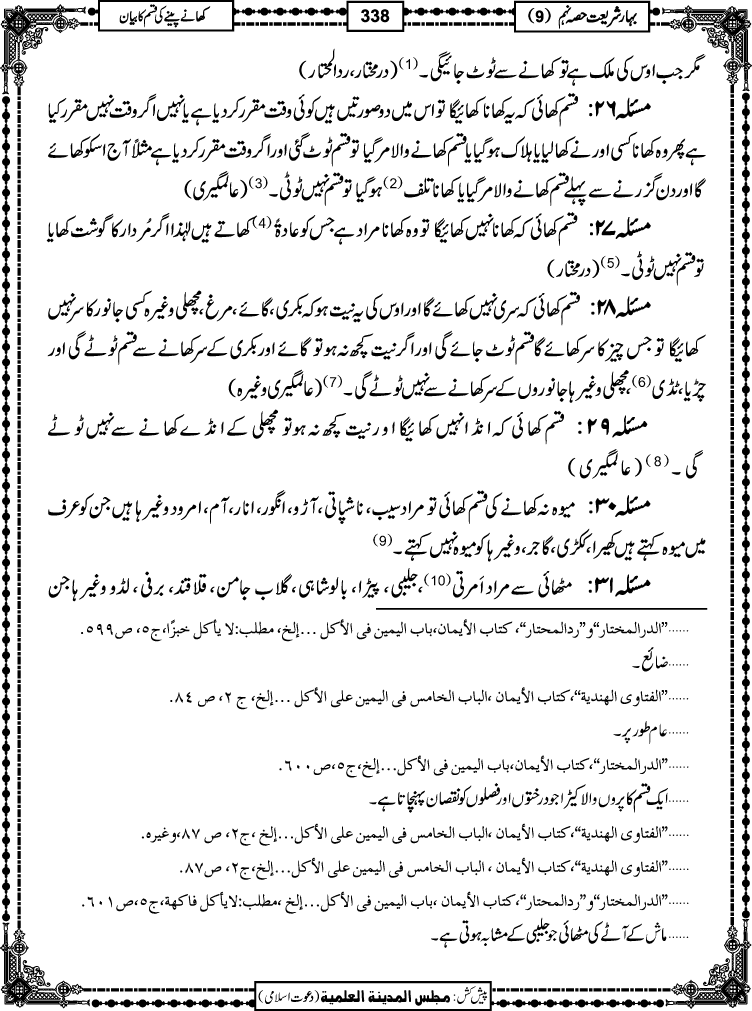 بہارِ شریعت حصہ نہم (9)
338
کھانے پینے کی قسم کا بیان
مگر جب اوس کی ملک ہے تو کھانے سے ٹوٹ جائیگی۔(1) (درمختار، ردالمحتار)
مسئلہ ۲۶: قسم کھائی کہ یہ کھانا کھائیگا تو اس میں دو صورتیں ہیں کوئی وقت مقرر کر دیا ہے یا نہیں اگر وقت نہیں مقرر کیا
ہے پھر وہ کھانا کسی اور نے کھالیا یا ہلاک ہوگیا یا قسم کھانے والا مر گیا تو قسم ٹوٹ گئی اور اگر وقت مقرر کر دیا ہے مثلاً آج اسکو کھائے
گا اور دن گزرنے سے پہلے قسم کھانے والا مر گیا یا کھانا تلف (2) ہوگیا تو قسم نہیں ٹوٹی۔(3) (عالمگیری)
مسئلہ ۲۷: قسم کھائی کہ کھانا نہیں کھائیگا تو وہ کھانا مراد ہے جس کو عادۃً (4) کھاتے ہیں لہٰذا اگر مُردار کا گوشت کھایا
تو قسم نہیں ٹوٹی۔(5) (درمختار)
مسئلہ ۲۸: قسم کھائی کہ سری نہیں کھائے گا اور اوس کی یہ نیت ہو کہ بکری، گائے، مرغ، مچھلی وغیرہ کسی جانور کا سر نہیں
کھائیگا تو جس چیز کا سر کھائے گا قسم ٹوٹ جائے گی اور اگر نیت کچھ نہ ہو تو گائے اور بکری کے سر کھانے سے قسم ٹوٹے گی اور
چڑیا، ٹڈی (6)، مچھلی وغیرہا جانوروں کے سر کھانے سے نہیں ٹوٹے گی۔(7) (عالمگیری وغیرہ)
مسئلہ ۲۹: قسم کھائی کہ انڈا نہیں کھائیگا اور نیت کچھ نہ ہو تو مچھلی کے انڈے کھانے سے نہیں ٹوٹے
گی۔(8) (عالمگیری)
مسئلہ ۳۰: میوہ نہ کھانے کی قسم کھائی تو مراد سیب، ناشپاتی، آڑو، انگور، انار، آم، امرود وغیرہا ہیں جن کو عرف
میں میوہ کہتے ہیں کھیرا، ککڑی، گاجر، وغیرہا کو میوہ نہیں کہتے۔(9)
مسئلہ ۳۱: مٹھائی سے مراد اَمرتی (10)، جلیبی، پیڑا، بالوشاہی، گلاب جامن، قلاقند، برفی، لڈو وغیرہا جن
......”الدرالمختار“ و ”ردالمحتار“، کتاب الأیمان، باب الیمین فی الأکل ...إلخ، مطلب: لا یأکل خبزًا، ج۵، ص۵۹۹.
......ضائع۔
......”الفتاوی الھندیة“، کتاب الأیمان، الباب الخامس فی الیمین علی الأکل ...إلخ، ج۲، ص۸۴.
......عام طور پر۔
......”الدرالمختار“، کتاب الأیمان، باب الیمین فی الأکل...إلخ، ج۵، ص۶۰۰.
......ایک قسم کا پروں والا کیڑا جو درختوں اور فصلوں کو نقصان پہنچاتا ہے۔
......”الفتاوی الھندیة“، کتاب الأیمان، الباب الخامس فی الیمین علی الأکل...إلخ، ج۲، ص۸۷، وغیرہ.
......”الفتاوی الھندیة“، کتاب الأیمان، الباب الخامس فی الیمین علی الأکل...إلخ، ج۲، ص۸۷.
......”الدرالمختار“ و ”ردالمحتار“، کتاب الأیمان، باب الیمین فی الأکل...إلخ، مطلب: لا یأکل فاکھة، ج۵، ص۶۰۱.
......ماش کے آٹے کی مٹھائی جو جلیبی کے مشابہ ہوتی ہے۔
پیش کش: مجلس المدینة العلمیة (دعوتِ اسلامی)